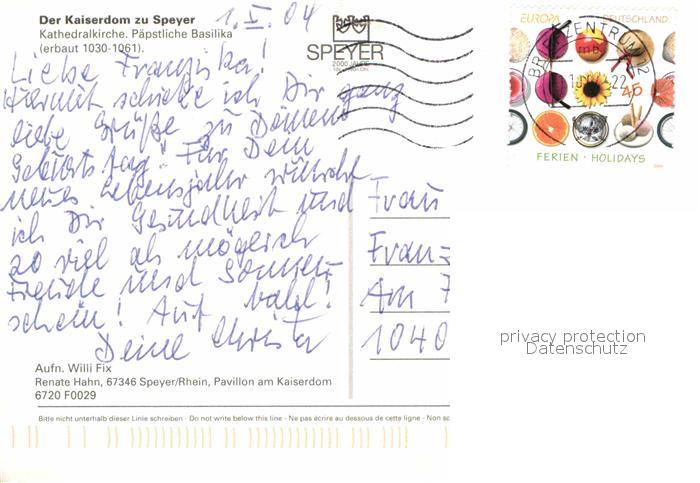 Der Kaiserdom zu Speyer
Kathedralkirche. Päpstliche Basilika
(erbaut 1030-1061).
1. V. 04
SPEYER
2000 JAHRE
EUROPA DEUTSCHLAND
BRIEFZENTRUM
45
FERIEN · HOLIDAYS
Liebe Franziska!
Hiermit schicke ich Dir ganz
liebe Grüße zu Deinem
Geburtstag! Für Dein
neues Lebensjahr wünsche
ich Dir Gesundheit und
so viel als möglich
Freude und Sonnen-
schein! Auf bald!
Deine Christa
Frau
Fran
Am
1040
privacy protection
Datenschutz
Aufn. Willi Fix
Renate Hahn, 67346 Speyer/Rhein, Pavillon am Kaiserdom
6720 F0029
Bitte nicht unterhalb dieser Linie schreiben - Do not write below this line - Ne pas écrire au dessous de cette ligne - Non sc